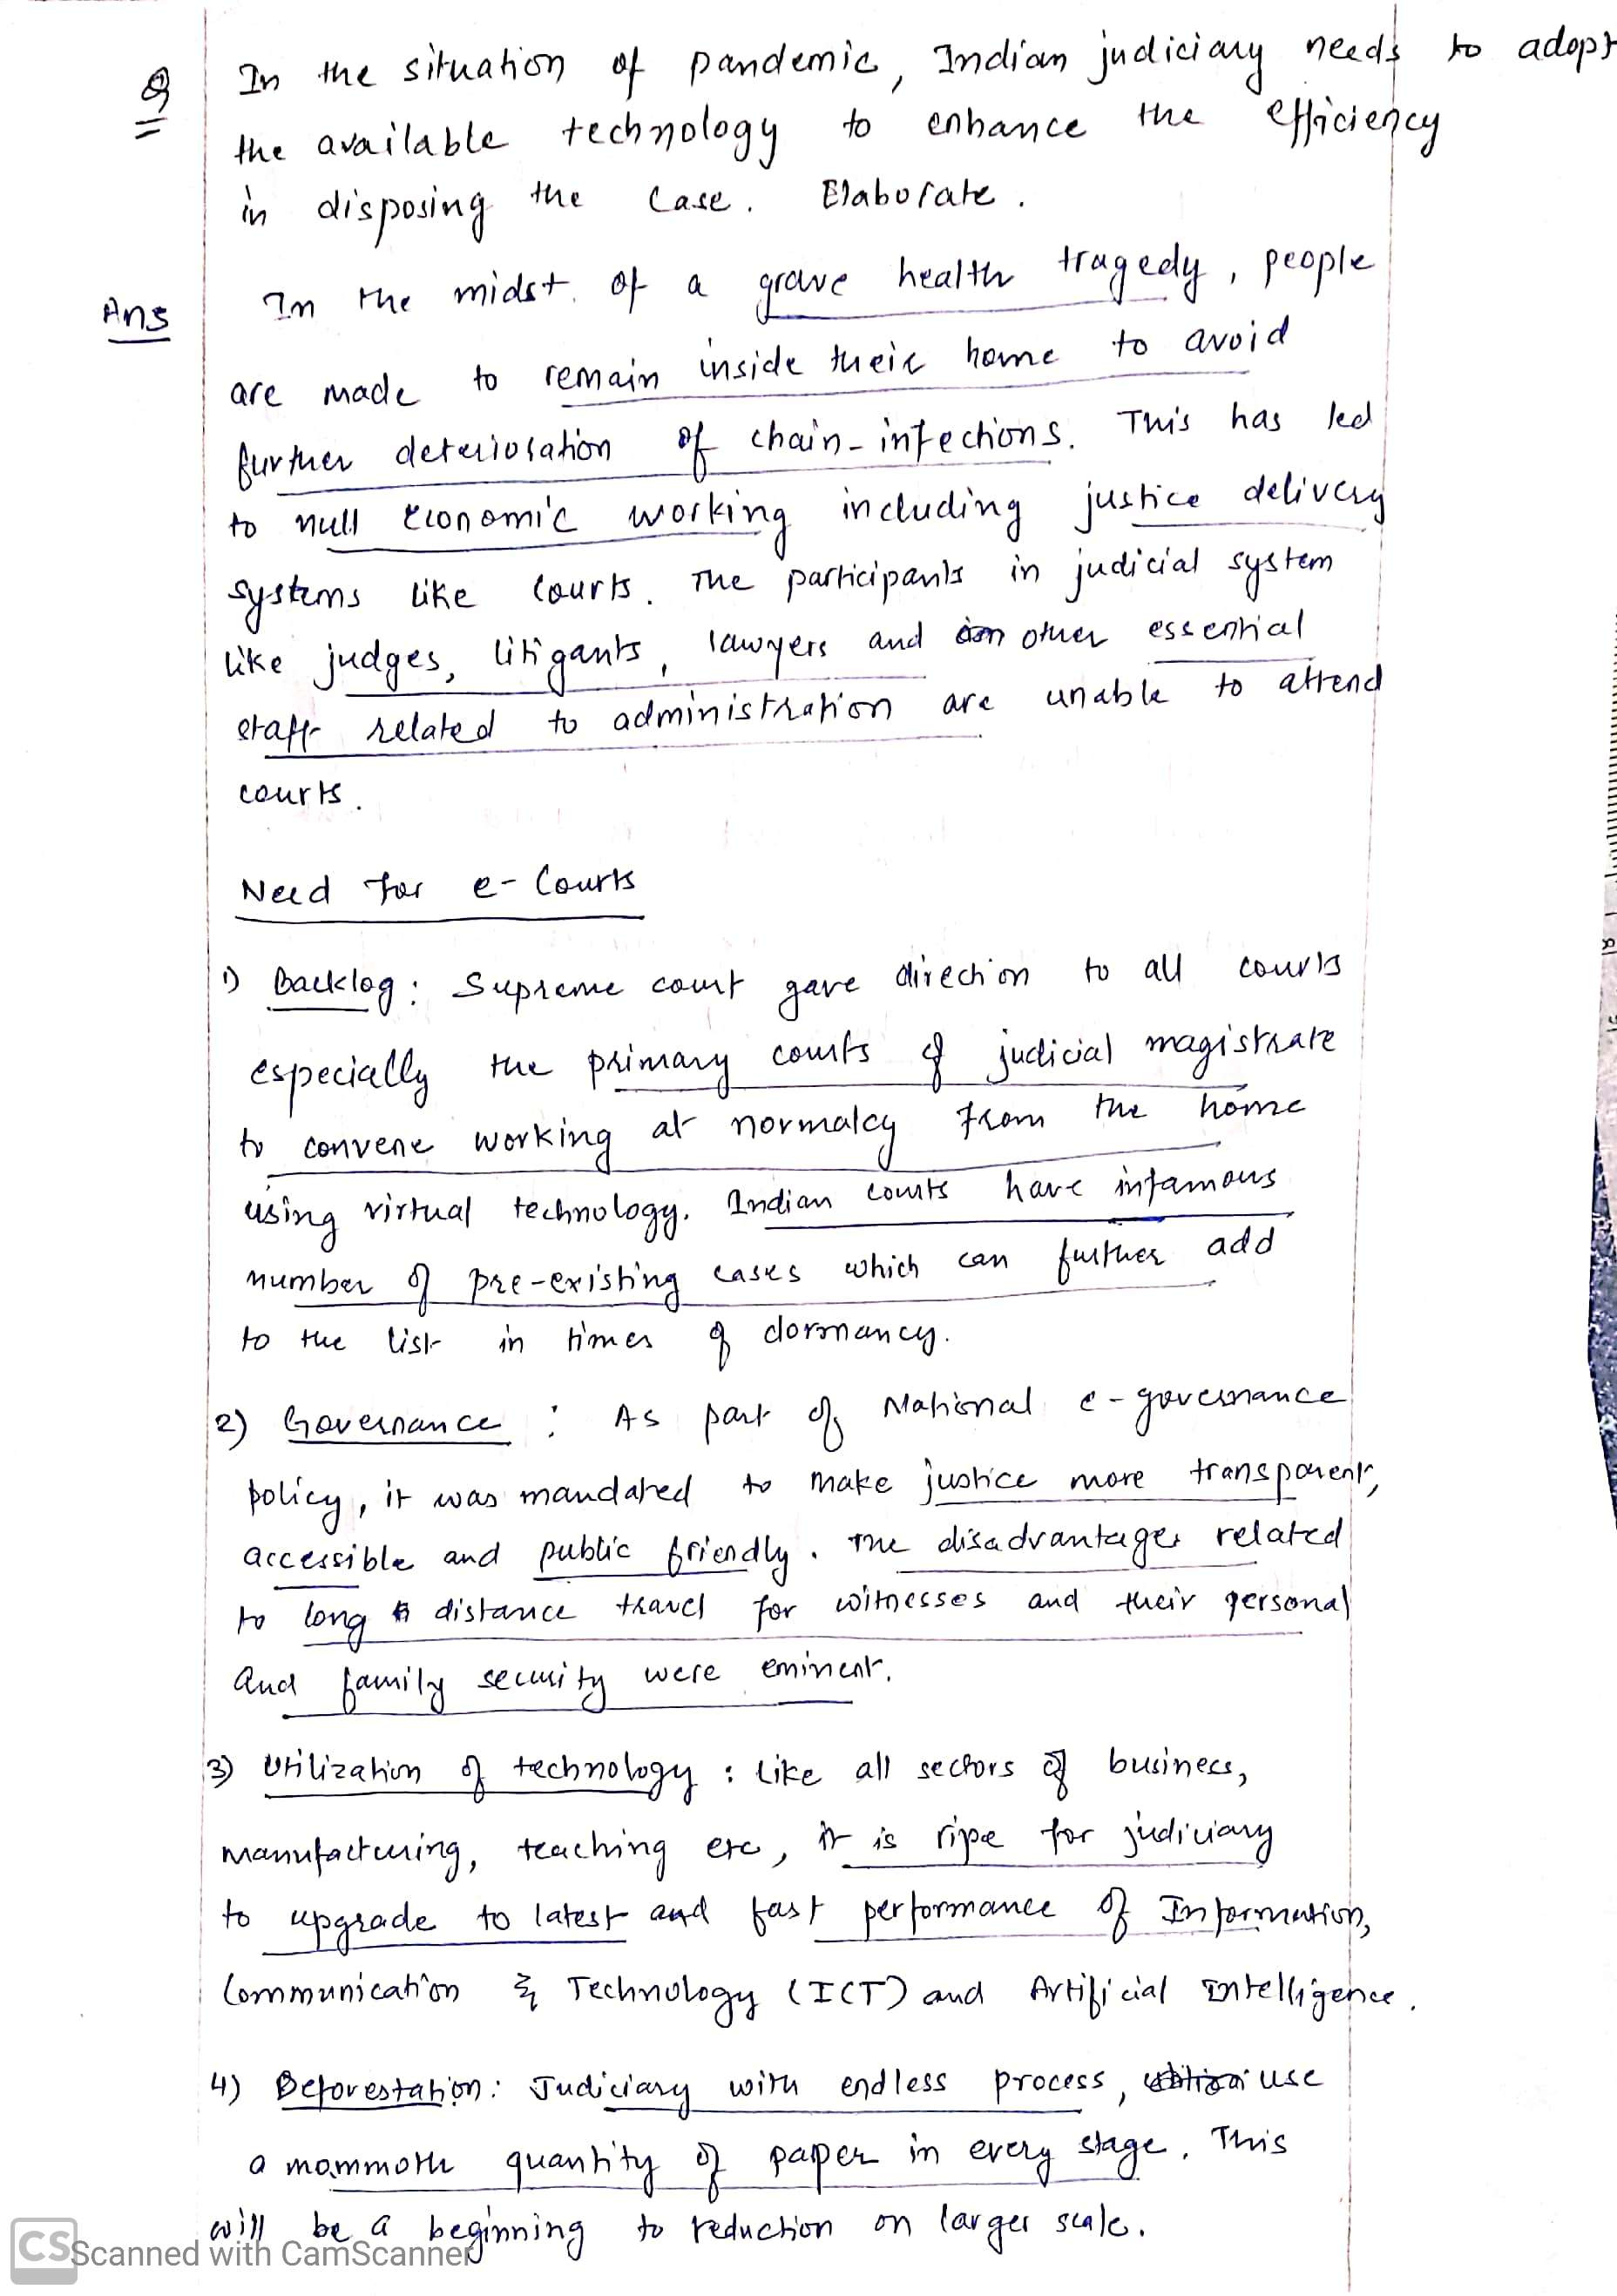 Q In the situation of pandemic, Indian judiciary needs to adopt
the available technology to enhance the efficiency
in disposing the case. Elaborate.
Ans In the midst of a grave health tragedy, people
are made to remain inside their home to avoid
further deterioration of chain-infections. This has led
to null economic working including justice delivery
systems like courts. The participants in judicial system
like judges, litigants, lawyers and other essential
staff related to administration are unable to attend
courts.
Need for e-Courts
1) Backlog: Supreme court gave direction to all courts
especially the primary courts of judicial magistrate
to convene working at normalcy from the home
using virtual technology. Indian courts have infamous
number of pre-existing cases which can further add
to the list in times of dormancy.
2) Governance: As part of National e-governance
policy, it was mandated to make justice more transparent,
accessible and public friendly. The disadvantages related
to long distance travel for witnesses and their personal
and family security were eminent.
3) Utilization of technology: Like all sectors of business,
manufacturing, teaching etc, it is ripe for judiciary
to upgrade to latest and fast performance of Information,
Communication & Technology (ICT) and Artificial Intelligence.
4) Deforestation: Judiciary with endless process, use
a mammoth quantity of paper in every stage. This
will be a beginning to reduction on larger scale.
CS Scanned with CamScanner